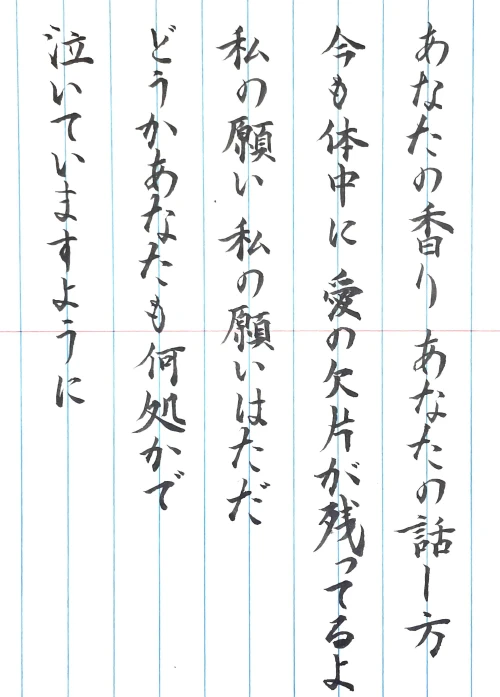 あなたの香り あなたの話し方
今も体中に 愛の欠片が残ってるよ
私の願い 私の願いはただ
どうかあなたも何処かで
泣いていますように